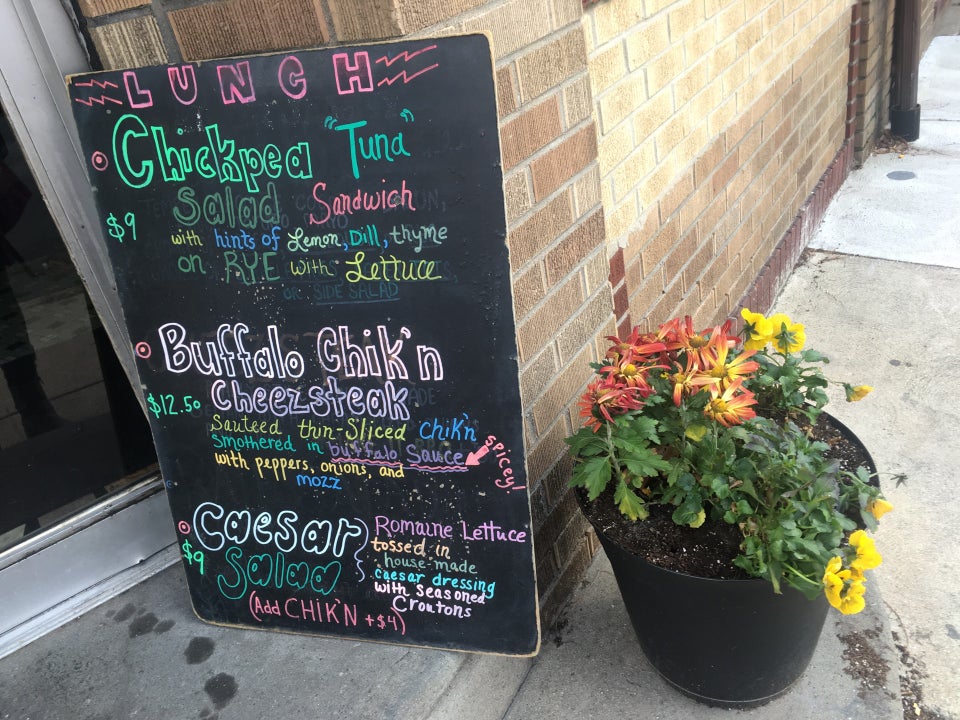 LUNCH
Chickpea "Tuna"
Salad Sandwich
$9
with hints of Lemon, Dill, thyme
on RYE with Lettuce
or SIDE SALAD
Buffalo Chik'n
$12.50 Cheezsteak
Sauteed thin-Sliced chik'n
smothered in buffalo Sauce
spicey!
with peppers, onions, and
mozz
Caesar
$9 Salad
Romaine Lettuce
tossed in
house-made
caesar dressing
with seasoned
Croutons
(Add CHIK'N +$4)